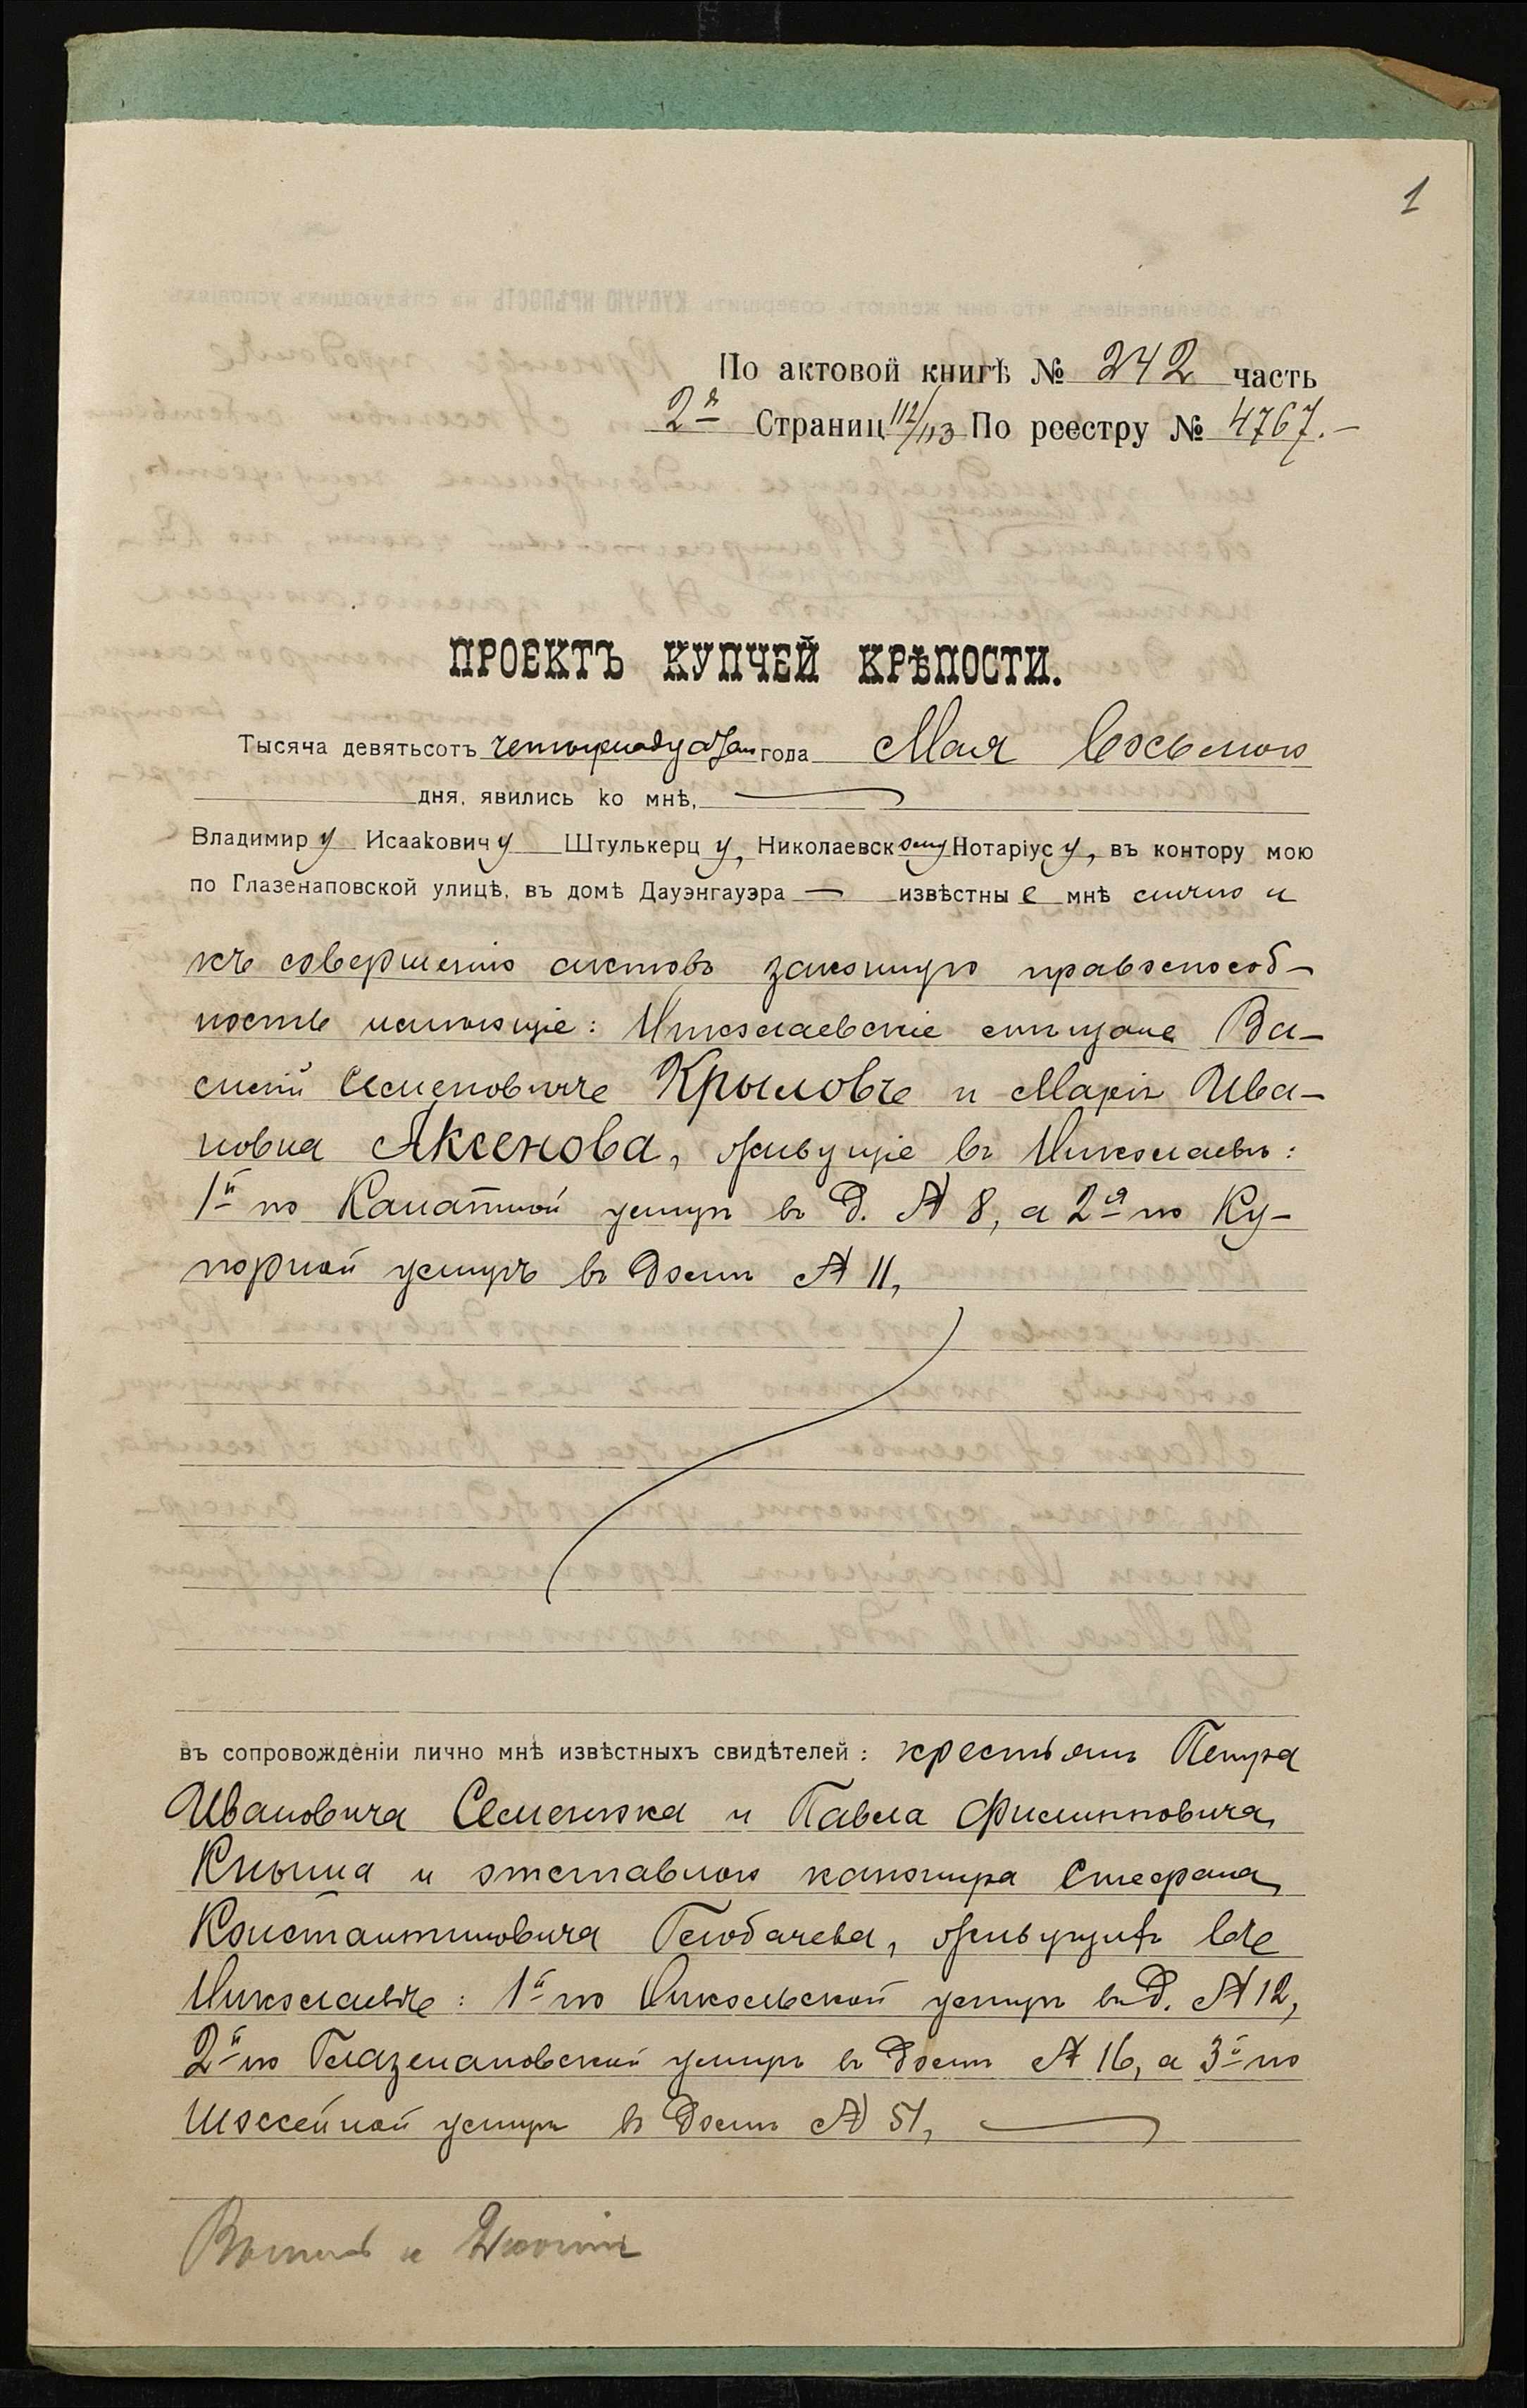 1
По актовой книгѣ № 242 часть
2я Страниц 112/113 По реестру № 4767.—
ПРОЕКТЪ КУПЧЕЙ КРѢПОСТИ.
Тысяча девятьсотъ четырнадцатаго года Мая восьмого
дня, явились ко мнѣ,
Владимиру Исааковичу Штулькерцу, Николаевскому Нотаріусу, въ контору мою
по Глазенаповской улицѣ, въ домѣ Дауэнгауэра — извѣстные мнѣ лично и
къ совершенію актовъ законную правоспособ-
ность имѣющіе: Николаевскіе мѣщане Ва-
силій Семеновичъ Крыловъ и Марія Ива-
новна Аксенова, живущіе въ Николаевѣ:
1й по Канатной улицѣ въ д. № 8, а 2я по Ку-
порной улицѣ въ домѣ № 11,
въ сопровожденіи лично мнѣ извѣстныхъ свидѣтелей: крестьянъ Петра
Ивановича Семенюка и Павла Филипповича
Кныша и отставного канонира Стефана
Константиновича Глобачева, живущихъ въ
Николаевѣ: 1й по Никольской улицѣ въ д. № 12,
2й по Глазенаповской улицѣ въ домѣ № 16, а 3й по
Шоссейной улицѣ въ домѣ № 51,